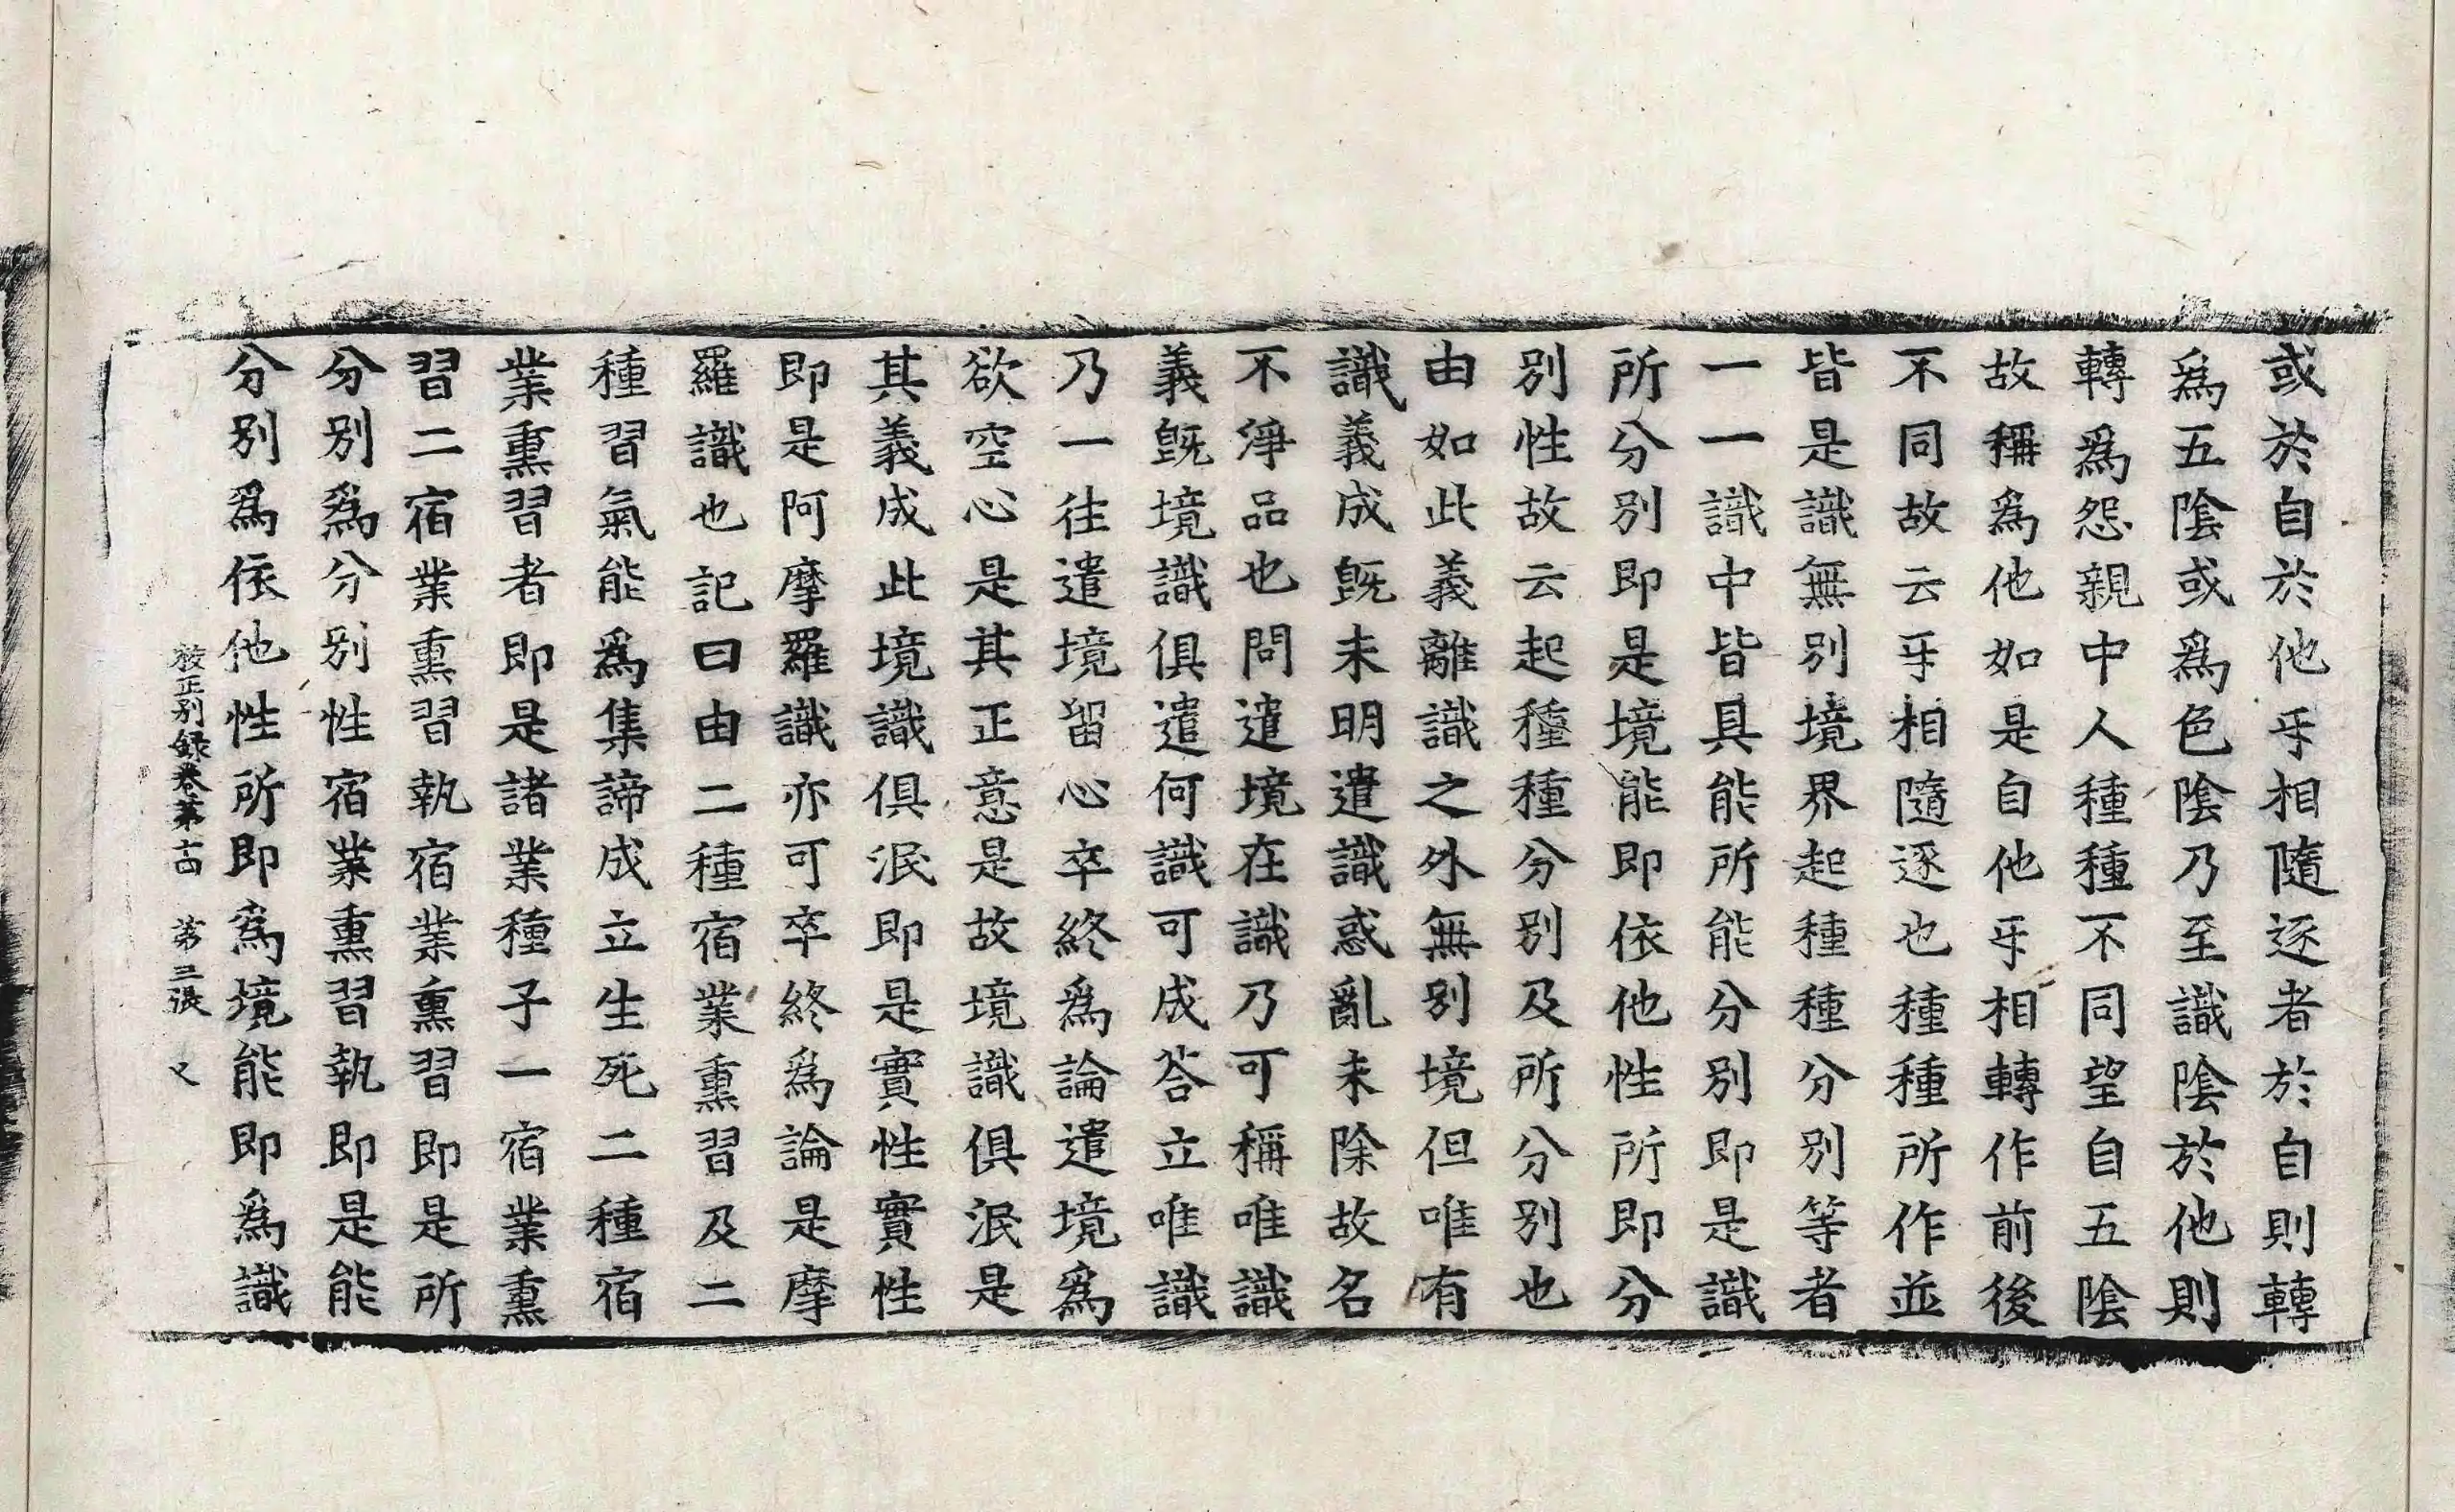 或於自於他㸦相隨逐者於自則轉
爲五陰或爲色陰乃至識陰於他則
轉爲怨親中人種種不同望自五陰
故稱爲他如是自他㸦相轉作前後
不同故云㸦相隨逐也種種所作並
皆是識無別境界起種種分別等者
一一識中皆具能所能分別即是識
所分別即是境能即依他性所即分
別性故云起種種分別及所分別也
由如此義離識之外無別境但唯有
識義成旣未明遣識惑亂未除故名
不淨品也問遣境在識乃可稱唯識
義旣境識俱遣何識可成荅立唯識
乃一往遣境留心卒終爲論遣境爲
欲空心是其正意是故境識俱泯是
其義成此境識俱泯即是實性實性
即是阿摩羅識亦可卒終爲論是摩
羅識也記曰由二種宿業熏習及二
種習氣能爲集諦成立生死二種宿
業熏習者即是諸業種子一宿業熏
習二宿業熏習執宿業熏習即是所
分別爲分別性宿業熏習執即是能
分別爲依他性所即爲境能即爲識
校正別録卷第十四 第三張 又